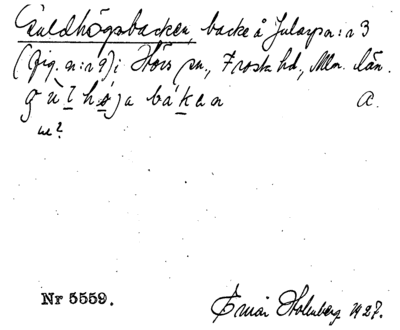 Guldhögsbacken, backe å Julaps n:r 3
(fig. n:r 9) i Hörs sn., Frosta hd, Mlm. län.
gùlhøja bákan a.
ur?
Nr 5559.
Einar Holmberg 1927.